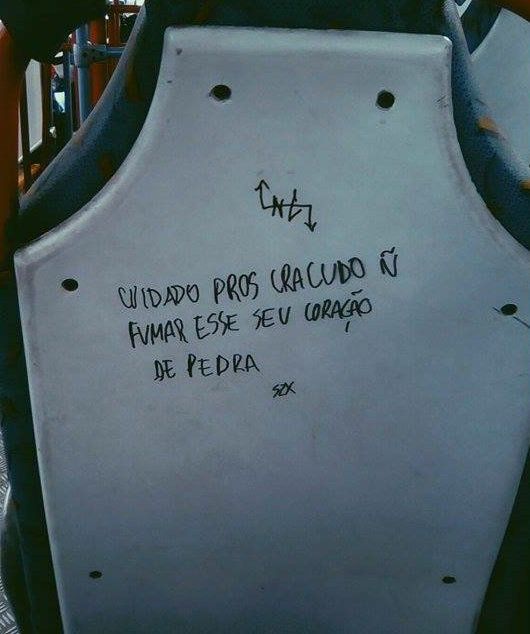 CUIDADO PROS CRACUDO Ñ
FUMAR ESSE SEU CORAÇÃO
DE PEDRA